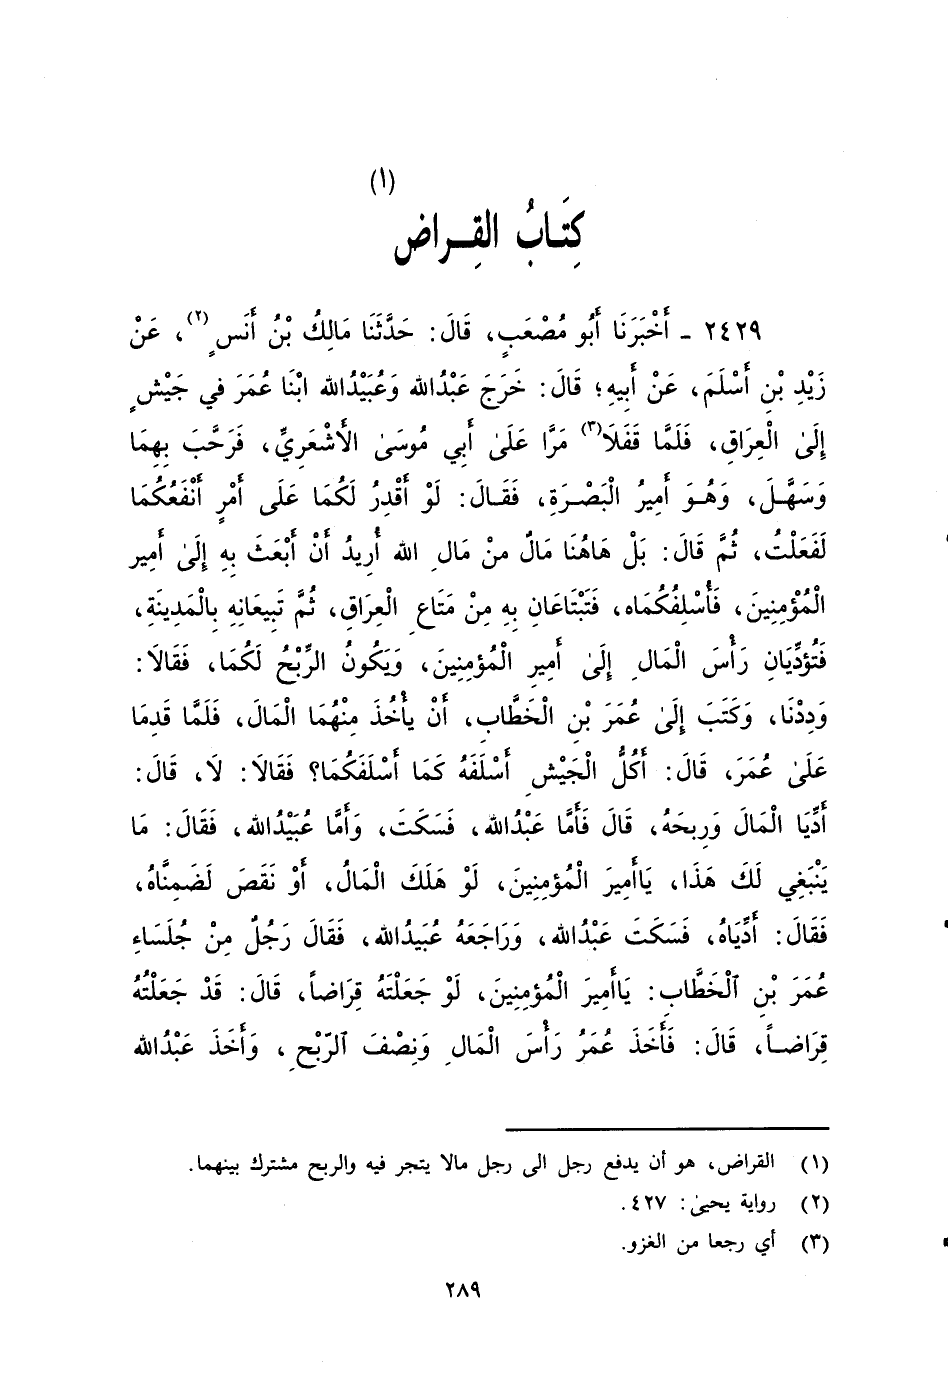 (١)
كِتَابُ القِـراض
٢٤٢٩ - أَخْبَرَنَا أَبُو مُصْعَبٍ، قَالَ: حَدَّثَنَا مَالِكُ بْنُ أَنَسٍ(٢)، عَنْ
زَيْدِ بْنِ أَسْلَمَ، عَنْ أَبِيهِ؛ قَالَ: خَرَجَ عَبْدُالله وَعُبَيْدُالله ابْنَا عُمَرَ في جَيْشٍ
إِلىٰ الْعِرَاقِ، فَلَمَّا قَفَلَا(٣) مَرَّا عَلَىٰ أَبي مُوسَىٰ الأَشْعَرِيِّ، فَرَحَّبَ بِهِمَا
وَسَهَّـلَ، وَهُـوَ أَمِيرُ الْبَصْـرَةِ، فَقَـالَ: لَوْ أَقْدِرُ لَكُمَا عَلَى أَمْرٍ أَنْفَعُكُمَا
لَفَعَلْتُ، ثُمَّ قَالَ: بَلْ هَاهُنَا مَالٌ مِنْ مَالِ الله أُرِيدُ أَنْ أَبْعَثَ بِهِ إِلىٰ أَمِيرِ
الْمُؤْمِنِينَ، فَأُسْلِفُكُمَاه، فَتَبْتَاعَانِ بِهِ مِنْ مَتَاعِ الْعِرَاقِ، ثُمَّ تَبِيعَانِهِ بِالْمَدِينَةِ،
فَتُؤدِّيَانِ رَأْسَ الْمَالِ إِلىٰ أَمِيرِ الْمُؤمِنِينَ، وَيَكُونُ الرِّبْحُ لَكُمَا، فَقَالاَ:
وَدِدْنَا، وَكَتَبَ إِلىٰ عُمَرَ بْنِ الْخَطَّابِ، أَنْ يأْخُذَ مِنْهُمَا الْمَالَ، فَلَمَّا قَدِمَا
عَلَىٰ عُمَرَ، قَالَ: أَكُلُّ الْجَيْشِ أَسْلَفَهُ كَمَا أَسْلَفَكُمَا؟ فَقَالاَ: لاَ، قَالَ:
أَدِّيَا الْمَالَ وَرِبحَهُ، قَالَ فَأَمَّا عَبْدُالله، فَسَكَتَ، وَأَمَّا عُبَيْدُالله، فَقَالَ: مَا
يَنْبَغِي لَكَ هَذَا، يَاأَمِيرَ الْمُؤْمِنِينَ، لَوْ هَلَكَ الْمَالُ، أَوْ نَقَصَ لَضَمِنَّاهُ،
فَقَالَ: أَدِّيَاهُ، فَسَكَتَ عَبْدُالله، وَرَاجَعَهُ عُبَيدُالله، فَقَالَ رَجُلٌ مِنْ جُلَسَاءِ
عُمَرَ بْنِ ٱلْخَطَّابِ: يَاأَمِيرَ الْمُؤمِنِينَ، لَوْ جَعَلْتَهُ قِرَاضاً، قَالَ: قَدْ جَعَلْتُهُ
قِرَاضـاً، قَالَ: فَأَخَذَ عُمَرُ رَأْسَ الْمَالِ وَنِصْفَ ٱلرّبْحِ، وَأَخَذَ عَبْدُالله
(١) القراض، هو أن يدفع رجل الى رجل مالا يتجر فيه والربح مشترك بينهما.
(٢) رواية يحيىٰ: ٤٢٧.
(٣) أي رجعا من الغزو.
٢٨٩